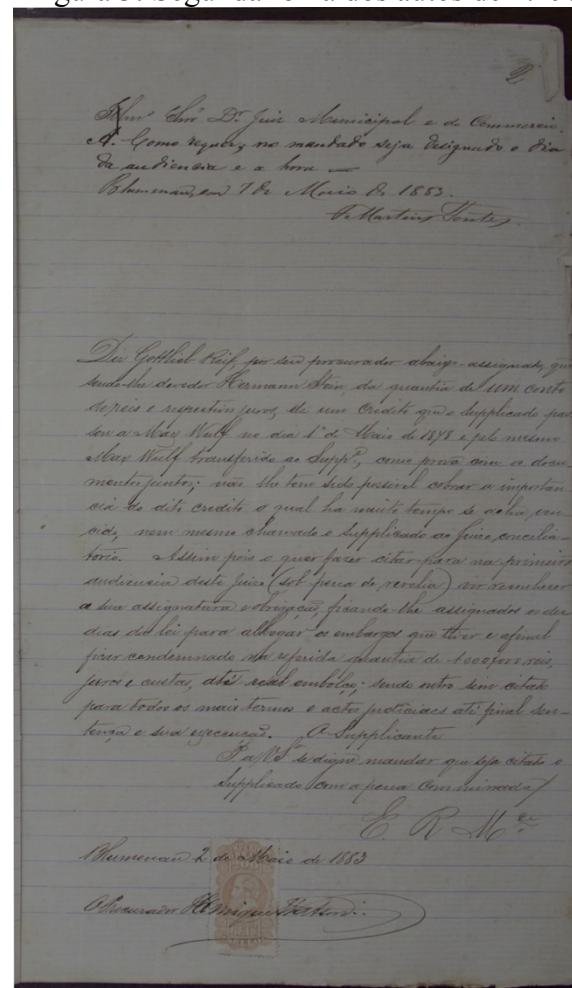 2
Illmo Snr Dr Juiz Municipal e do Commercio
A. Como requer, no mandado seja designado o dia
da audiencia e a hora —
Blumenau, em 7 de Maio de 1883.
Martins Fontes
Diz Gottlieb Reif, por seu procurador abaixo-assignado, que
sendo-lhe devedor Hermann Stein, da quantia de um conto
de reis e respectivos juros, de um credito que o supplicado pas
sou a Max Wulf no dia 1º de Maio de 1878 e pelo mesmo
Max Wulf transferido ao Suppe, como prova com os docu
mentos juntos; não lhe tem sido possivel cobrar a importan
cia do dito credito o qual ha muito tempo se acha ven
cido, nem mesmo chamado o Supplicado ao Juizo concilia-
torio. Assim pois o quer fazer citar para na primeira
audiencia deste Juizo (sob pena de revelia) vir reconhecer
a sua assignatura e obrigação, ficando-lhe assignados os dez
dias da lei para allegar os embargos que tiver e afinal
ficar condemnado na referida quantia de 1:000$000 reis,
juros e custas, até real embolço; sendo outro sim citado
para todos os mais termos e actos judiciaes até final sen-
tença e sua execução. O Supplicante
P. a VSª se digne mandar que seja citado o
Supplicado com a pena comminada
E. R. Mce
Blumenau 2 de Maio de 1883
O Procurador